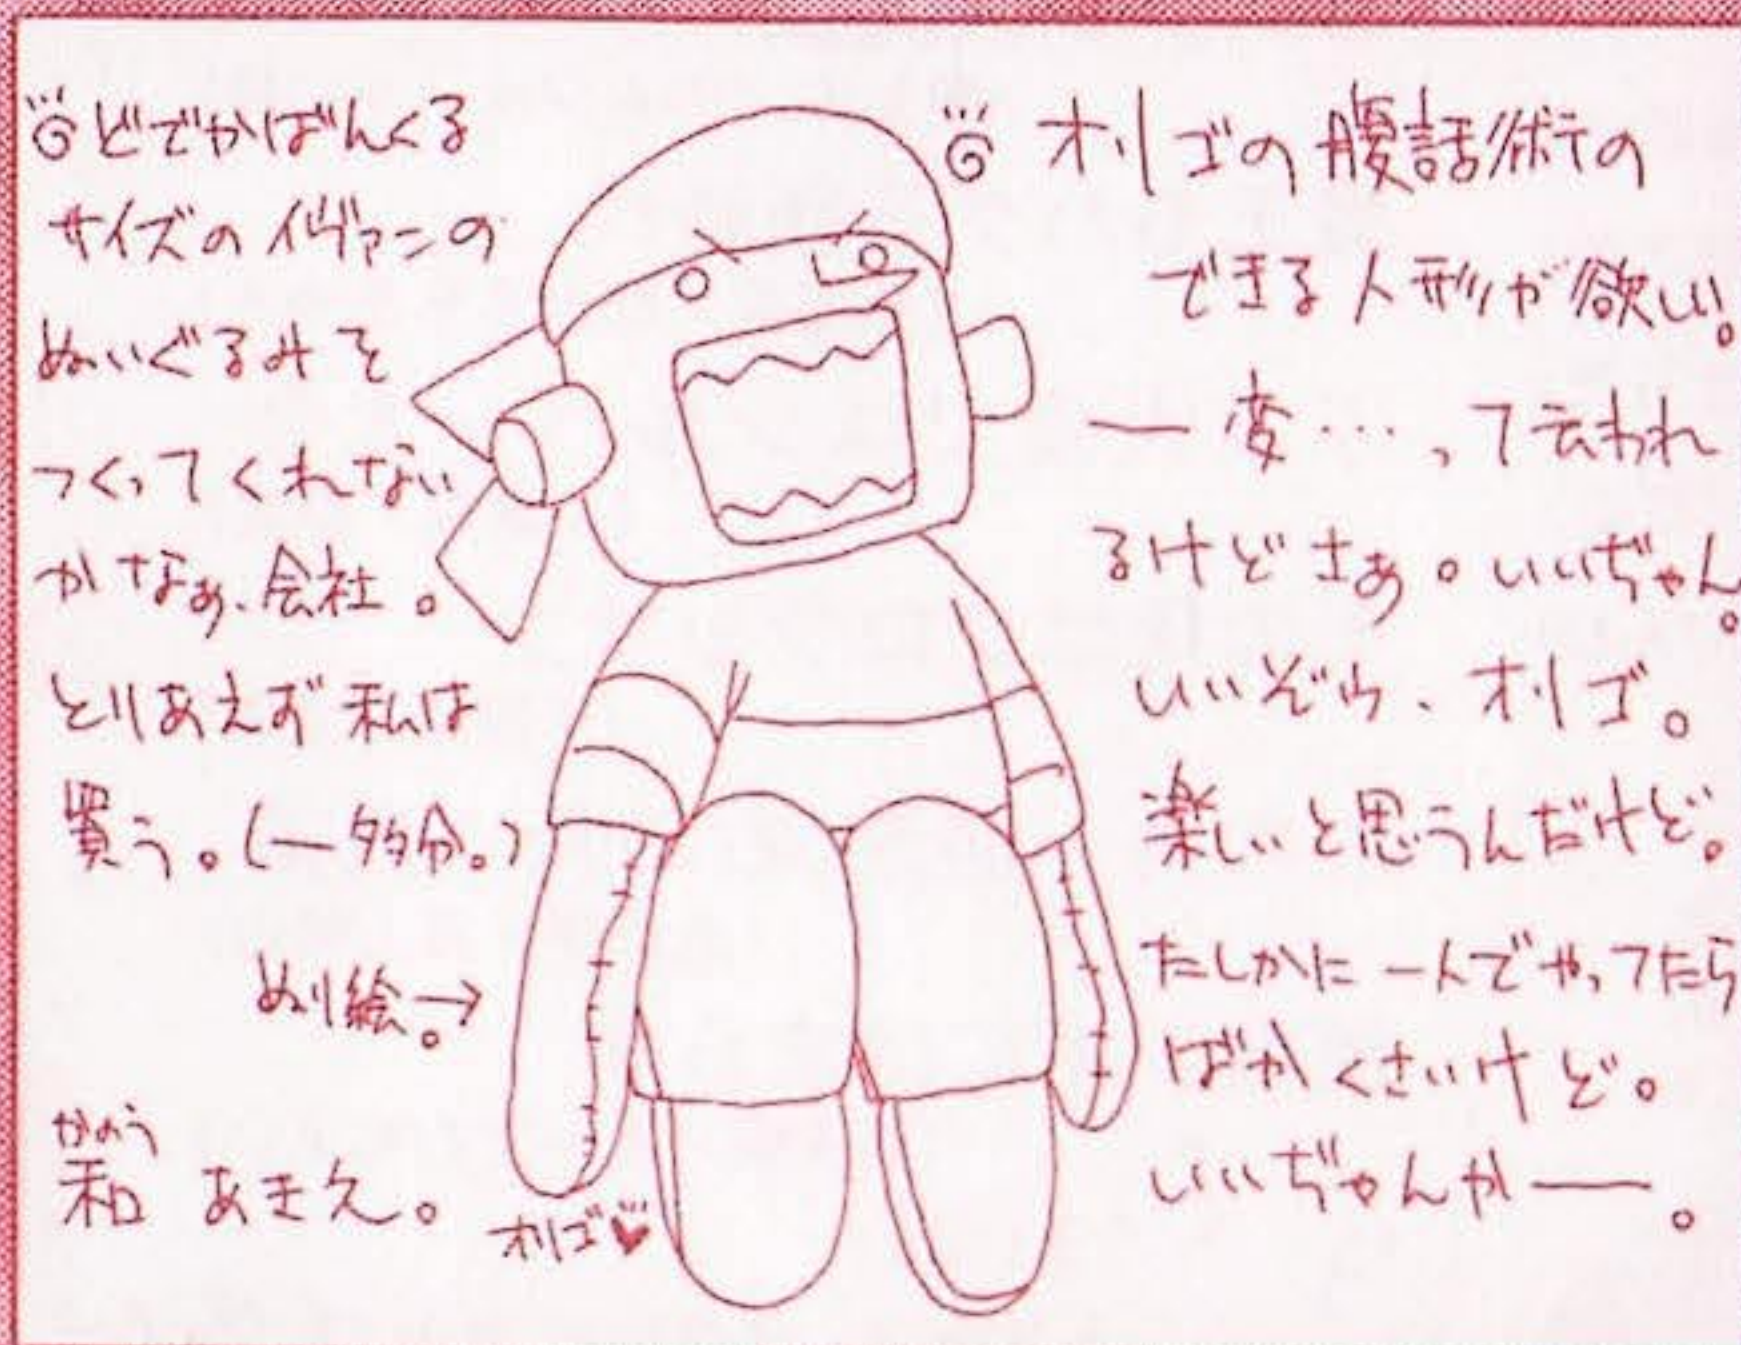 どでかばんくる
サイズのイヴァンの
ぬいぐるみを
つくってくれない
かなぁ、会社。
とりあえず私は
買う。(―多分。)
ぬり絵。→
かのう
和 あきえ。
オリゴ♥
オリゴの腹話術の
できる人形が欲しい。
―変…、って云われ
るけどさぁ。いいぢゃん。
いいぞゥ、オリゴ。
楽しいと思うんだけど。
たしかに一人でやってたら
ばかくさいけど。
いいぢゃんか――。